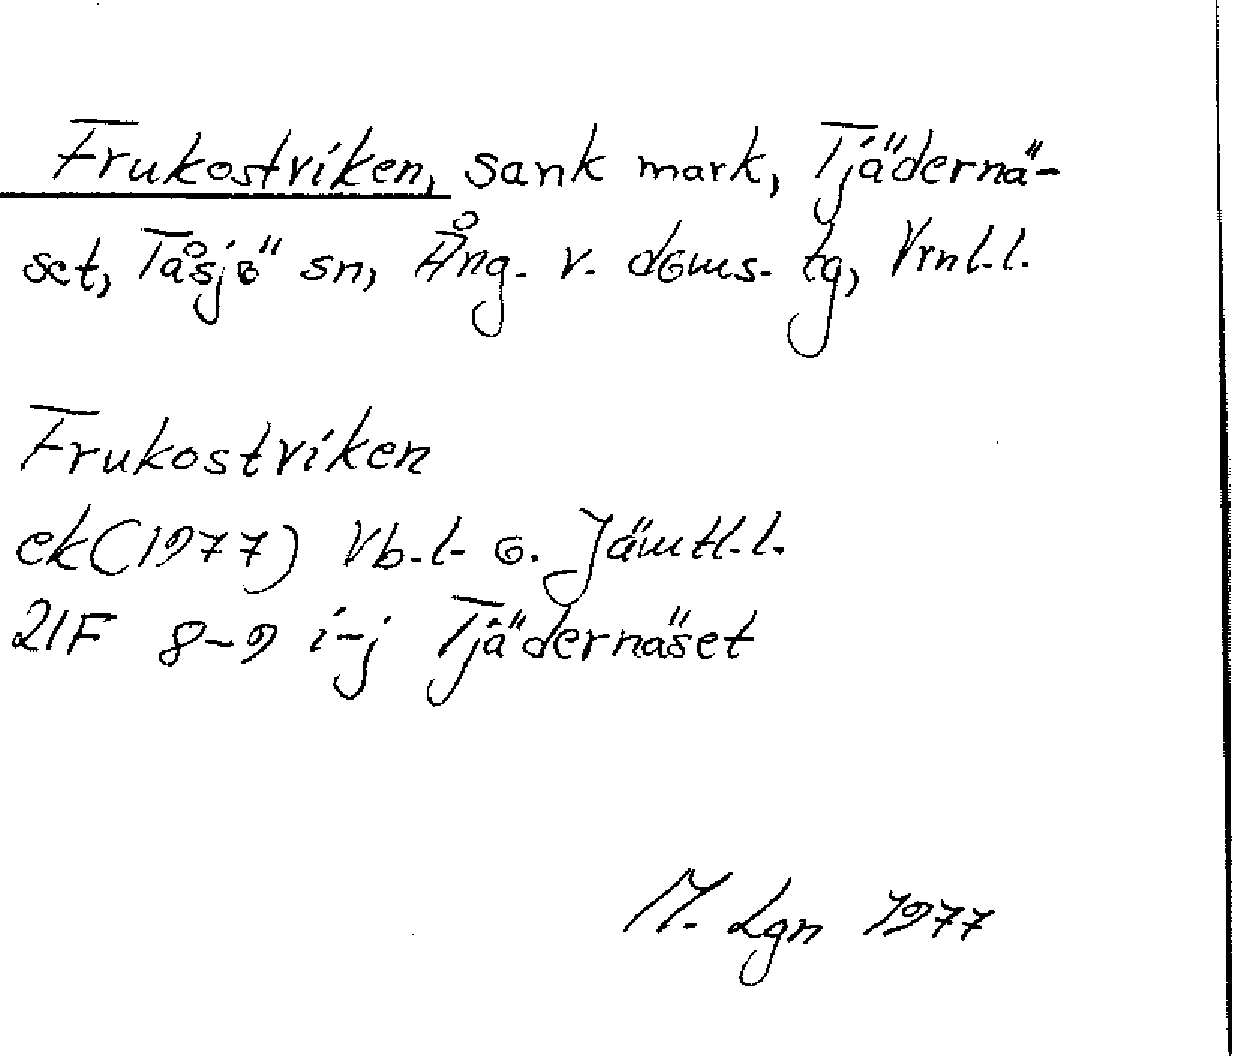 Frukostviken, sank mark, Tjädernä-
set, Tåsjö sn, Ång. v. doms. tg, Vrnl.l.
Frukostviken
ek (1977) Vb.l. o. Jämtl.l.
21F 8-9 i-j Tjädernäset
M. Lgn 1977